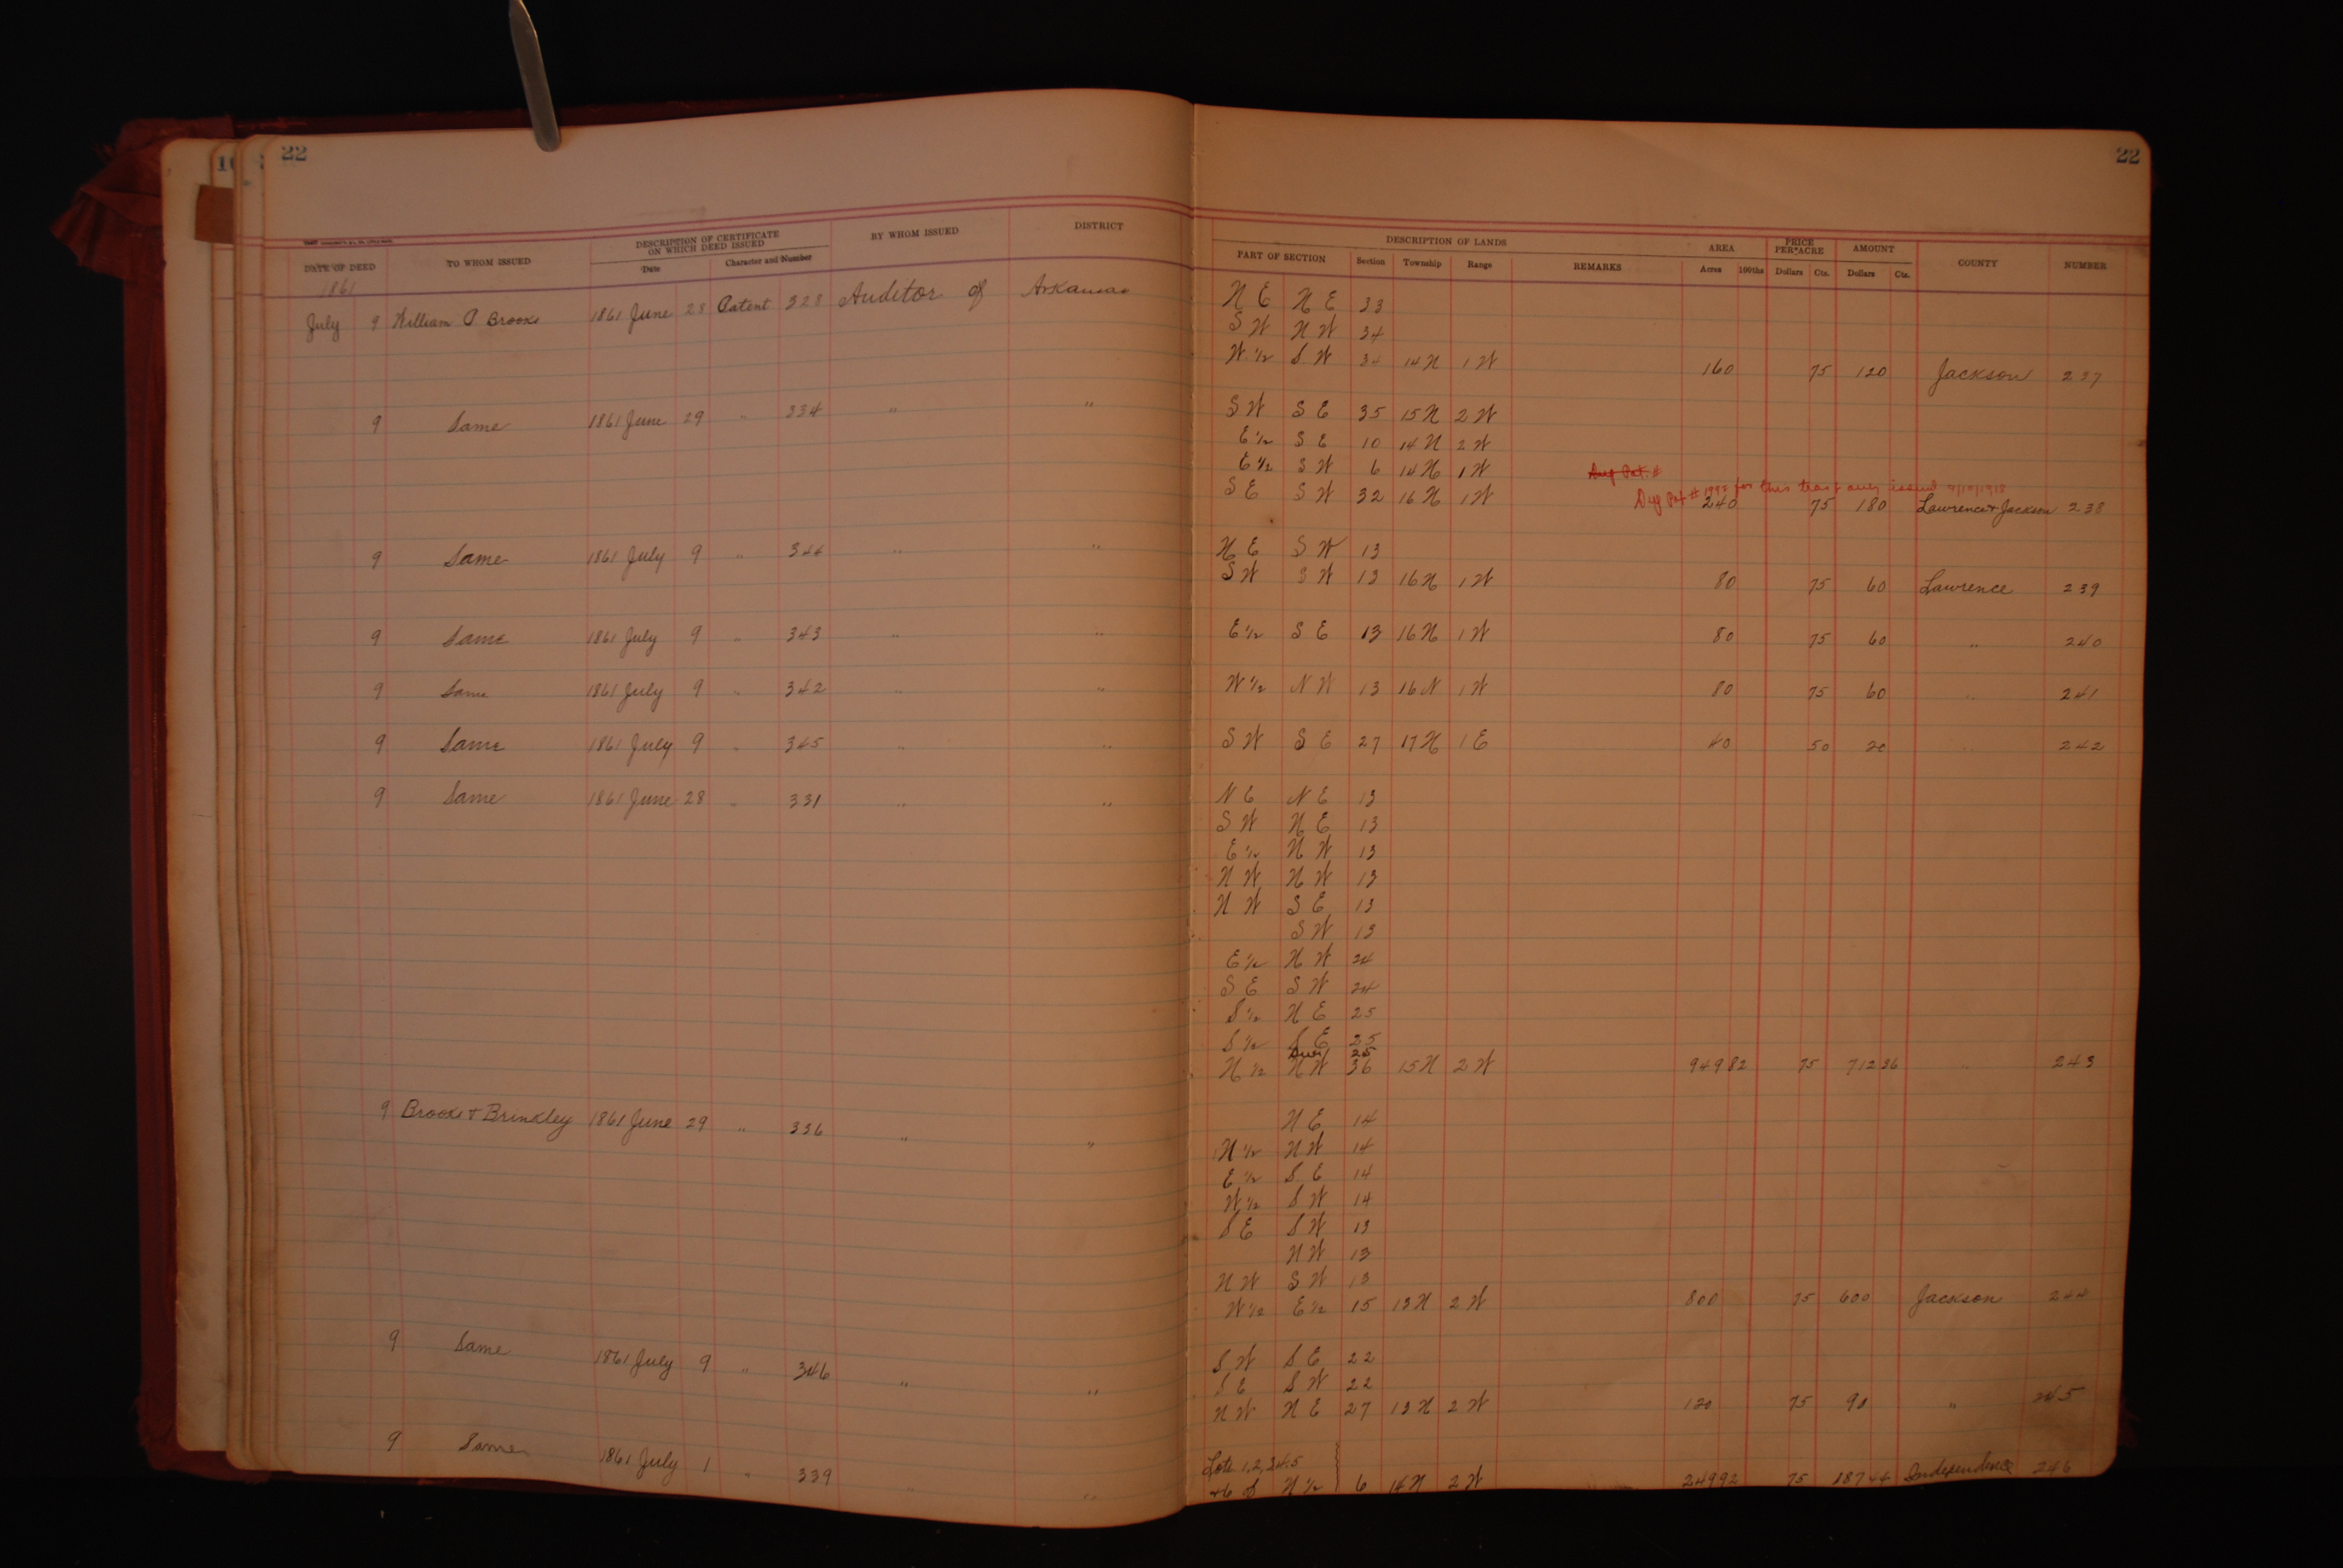 22
22
DATE OF DEED TO WHOM ISSUED DESCRIPTION OF CERTIFICATE ON WHICH DEED ISSUED Date Character and Number BY WHOM ISSUED DISTRICT DESCRIPTION OF LANDS PART OF SECTION Section Township Range REMARKS AREA Acres 100ths PRICE PER ACRE Dollars Cts. AMOUNT Dollars Cts. COUNTY NUMBER
1861
July 9 William P Brooks 1861 June 28 Patent 328 Auditor of Arkansas N E N E 33
S W N W 34
W 1/2 S W 34 14 N 1 W 160 75 120 Jackson 237
9 Same 1861 June 29 " 334 " " S W S E 35 15 N 2 W
E 1/2 S E 10 14 N 2 W
E 1/2 S W 6 14 N 1 W
S E S W 32 16 N 1 W for this tract only issued 240 75 180 Lawrence & Jackson 238
9 Same 1861 July 9 " 344 " " N E S W 13
S W S W 13 16 N 1 W 80 75 60 Lawrence 239
9 Same 1861 July 9 " 343 " " E 1/2 S E 13 16 N 1 W 80 75 60 " 240
9 Same 1861 July 9 " 342 " " W 1/2 N W 13 16 N 1 W 80 75 60 " 241
9 Same 1861 July 9 " 345 " " S W S E 27 17 N 1 E 40 50 20 " 242
9 Same 1861 June 28 " 331 " " N E N E 13
S W N E 13
E 1/2 N W 13
N W N W 13
N W S E 13
S W 13
E 1/2 N W 24
S E S W 24
S 1/2 N E 25
S 1/2 S E 25
25
N 1/2 N W 36 15 N 2 W 949 82 75 712 36 " 243
9 Brooks & Brinkley 1861 June 29 " 336 " " N E 14
N 1/2 N W 14
E 1/2 S E 14
W 1/2 S W 14
S E S W 13
N W 13
N W S W 13
W 1/2 E 1/2 15 13 N 2 W 800 75 600 Jackson 244
9 Same 1861 July 9 " 346 " " S W S E 22
S E S W 22
N W N E 27 13 N 2 W 120 75 90 " 245
9 Same 1861 July 1 " 339 " " Lots 1, 2, 3, 4, 5
& 6 of N 1/2 6 14 N 2 W 249 92 75 187 44 Independence 246